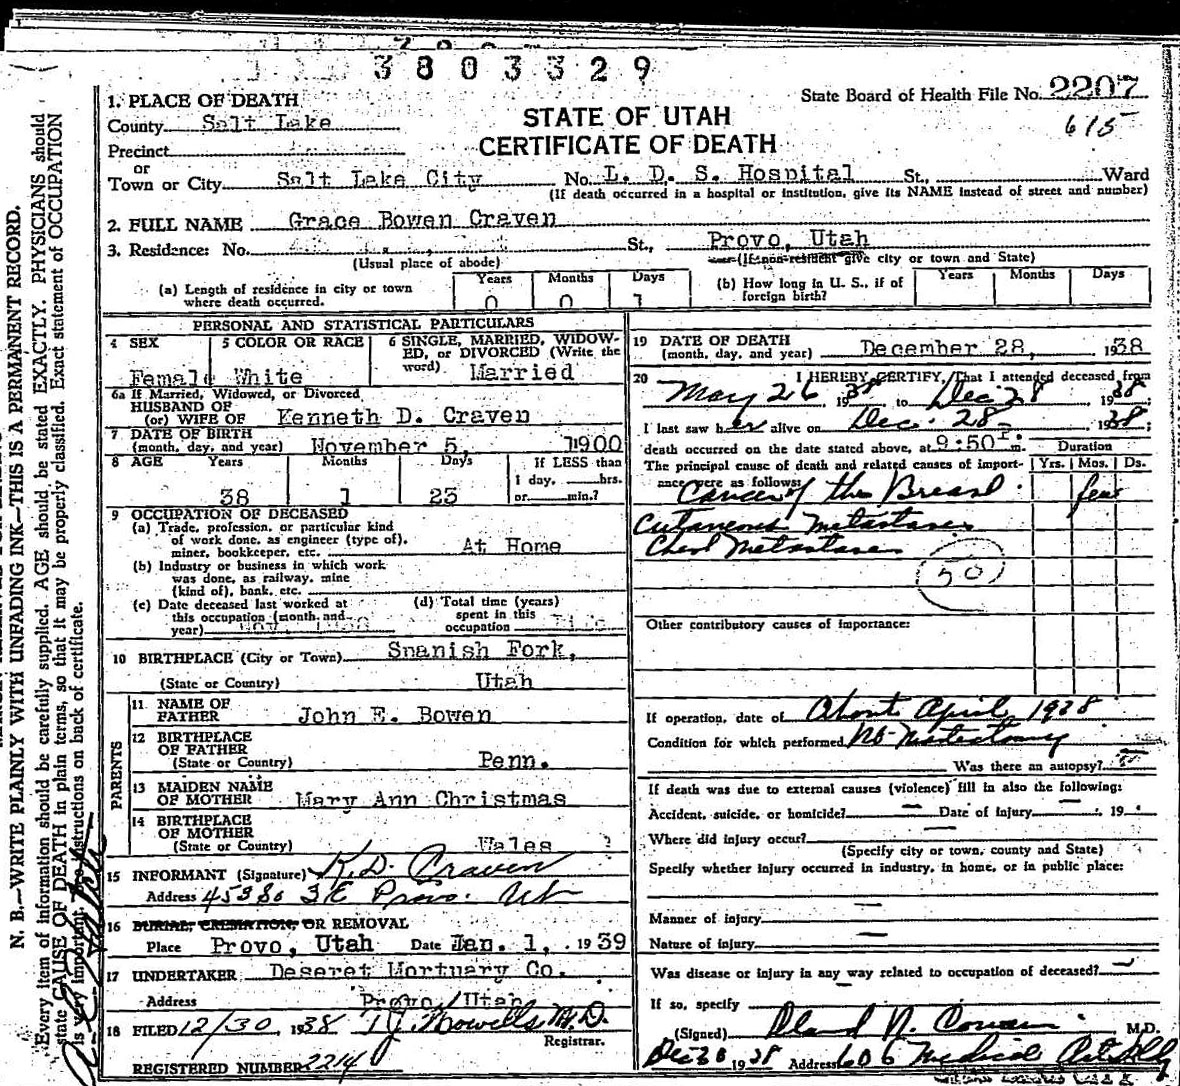 3803329
State Board of Health File No. 2207
615
STATE OF UTAH
CERTIFICATE OF DEATH
1. PLACE OF DEATH
County Salt Lake
Precinct
or
Town or City Salt Lake City No. L. D. S. Hospital St., Ward
(If death occurred in a hospital or institution, give its NAME instead of street and number)
2. FULL NAME Grace Bowen Craven
3. Residence: No. St., Provo, Utah
(Usual place of abode) (If non-resident give city or town and State)
(a) Length of residence in city or town where death occurred. Years 0 Months 0 Days 1
(b) How long in U. S., if of foreign birth? Years Months Days
PERSONAL AND STATISTICAL PARTICULARS
4 SEX Female
5 COLOR OR RACE White
6 SINGLE, MARRIED, WIDOWED, or DIVORCED (Write the word) Married
6a If Married, Widowed, or Divorced
HUSBAND OF
(or) WIFE OF Kenneth D. Craven
7 DATE OF BIRTH
(month, day, and year) November 5, 1900
8 AGE Years 38 Months 1 Days 23 If LESS than 1 day, hrs. or min.?
9 OCCUPATION OF DECEASED
(a) Trade, profession, or particular kind
of work done, as engineer (type of),
miner, bookkeeper, etc. At Home
(b) Industry or business in which work
was done, as railway, mine
(kind of), bank, etc.
(c) Date deceased last worked at
this occupation (month and
year)
(d) Total time (years)
spent in this
occupation Life
10 BIRTHPLACE (City or Town) Spanish Fork,
(State or Country) Utah
PARENTS
11 NAME OF
FATHER John E. Bowen
12 BIRTHPLACE
OF FATHER
(State or Country) Penn.
13 MAIDEN NAME
OF MOTHER Mary Ann Christmas
14 BIRTHPLACE
OF MOTHER
(State or Country) Wales ?
15 INFORMANT (Signature) K. D. Craven
Address 453 So 3 E Provo. Ut
16 BURIAL, CREMATION, OR REMOVAL
Place Provo, Utah Date Jan. 1, 1939
17 UNDERTAKER Deseret Mortuary Co.
Address Provo, Utah
18 FILED 12/30, 1938 M.D.
Registrar.
REGISTERED NUMBER 2214
19 DATE OF DEATH
(month, day, and year) December 28, 1938
20 I HEREBY CERTIFY, That I attended deceased from
May 26 1938 to Dec 28 1938;
I last saw her alive on Dec. 28 1938;
death occurred on the date stated above, at 9:50 P. m. Duration
The principal cause of death and related causes of importance were as follows: Yrs. Mos. Ds.
Cancer of the Breast. few
Cutaneous Metastases
Chest Metastases
50
Other contributory causes of importance:
If operation, date of About April 1938
Condition for which performed
Was there an autopsy?
If death was due to external causes (violence) fill in also the following:
Accident, suicide, or homicide? — Date of injury — 19
Where did injury occur? —
(Specify city or town, county and State)
Specify whether injury occurred in industry, in home, or in public place:
Manner of injury —
Nature of injury —
Was disease or injury in any way related to occupation of deceased? —
If so, specify —
(Signed) M.D.
1938 Address 606 Medical Arts Bldg
N. B.—WRITE PLAINLY WITH UNFADING INK—THIS IS A PERMANENT RECORD.
Every item of information should be carefully supplied. AGE should be stated EXACTLY. PHYSICIANS should
state CAUSE OF DEATH in plain terms, so that it may be properly classified. Exact statement of OCCUPATION
is very important. instructions on back of certificate.